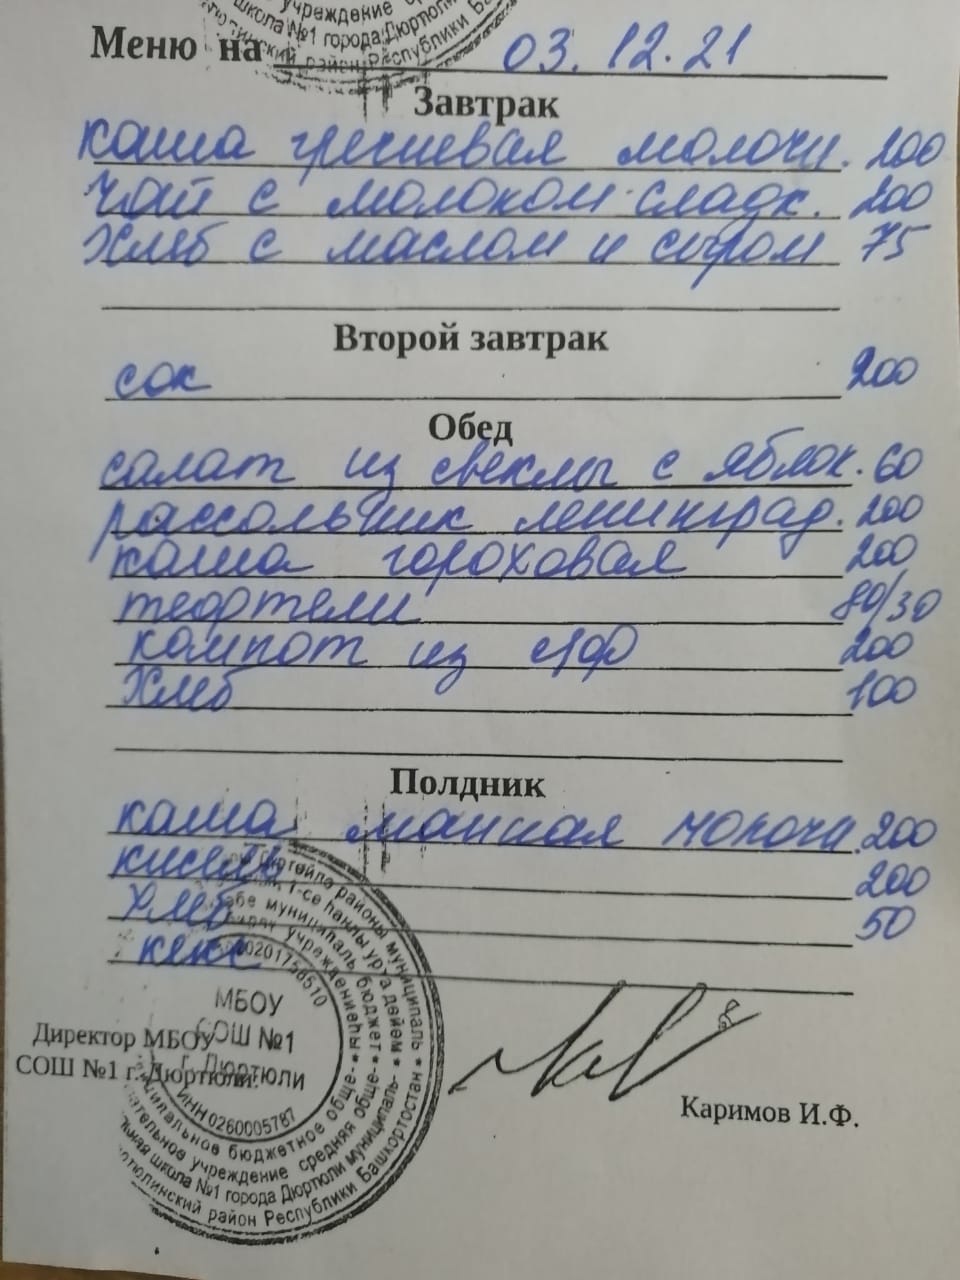 школа №1 города Дюртюли
район Республики
Меню на 03.12.21
Завтрак
каша гречневая молочн. 200
чай с молоком сладк. 200
Хлеб с маслом и сыром 75
Второй завтрак
сок 200
Обед
салат из свеклы с яблок. 60
рассольник ленинград. 200
каша гороховая 200
тефтели 80/30
компот из с/ф 200
Хлеб 100
Полдник
каша манная молочн. 200
кисель 200
Хлеб 50
кекс
МБОУ
СОШ №1
г. Дюртюли
ИНН 0260005787
Директор МБОУ
СОШ №1 г. Дюртюли:
Каримов И.Ф.
муниципальное бюджетное обще-
образовательное учреждение средняя обще-
школа №1 города Дюртюли муниципаль-
Дюртюлинский район Республики Башкортостан